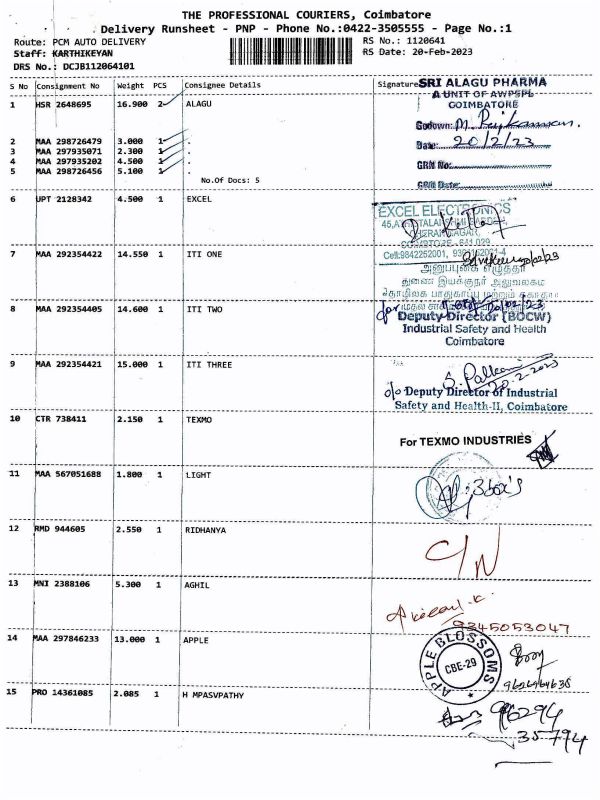 THE PROFESSIONAL COURIERS, Coimbatore
Delivery Runsheet - PNP - Phone No.:0422-3505555 - Page No.:1
Route: PCM AUTO DELIVERY
RS No.: 1120641
Staff: KARTHIKEYAN
RS Date: 20-Feb-2023
DRS No.: DCJB112064101
S No Consignment No Weight PCS Consignee Details Signature
SRI ALAGU PHARMA
A UNIT OF AWPSPL
COIMBATORE
1 HSR 2648695 16.900 2 ALAGU
Godown:
Date: 20/2/23
GRN No:
GRN Date:
2 MAA 298726479 3.000 1 .
3 MAA 297935071 2.300 1 .
4 MAA 297935202 4.500 1 .
5 MAA 298726456 5.100 1 .
No.Of Docs: 5
6 UPT 2128342 4.500 1 EXCEL
EXCEL ELECTRONICS
7 MAA 292354422 14.550 1 ITI ONE
8 MAA 292354405 14.600 1 ITI TWO
Deputy Director (BOCW)
Industrial Safety and Health
Coimbatore
9 MAA 292354421 15.000 1 ITI THREE
20.2.2023
o/o Deputy Director of Industrial
Safety and Health-II, Coimbatore
10 CTR 738411 2.150 1 TEXMO
For TEXMO INDUSTRIES
11 MAA 567051688 1.800 1 LIGHT
3box's
12 RMD 944605 2.550 1 RIDHANYA
C/N
13 MNI 2388106 5.300 1 AGHIL
9345053047
14 MAA 297846233 13.000 1 APPLE
APPLE BLOSSOMS
CBE-29
15 PRO 14361085 2.085 1 H MPASVPATHY
96294
35794